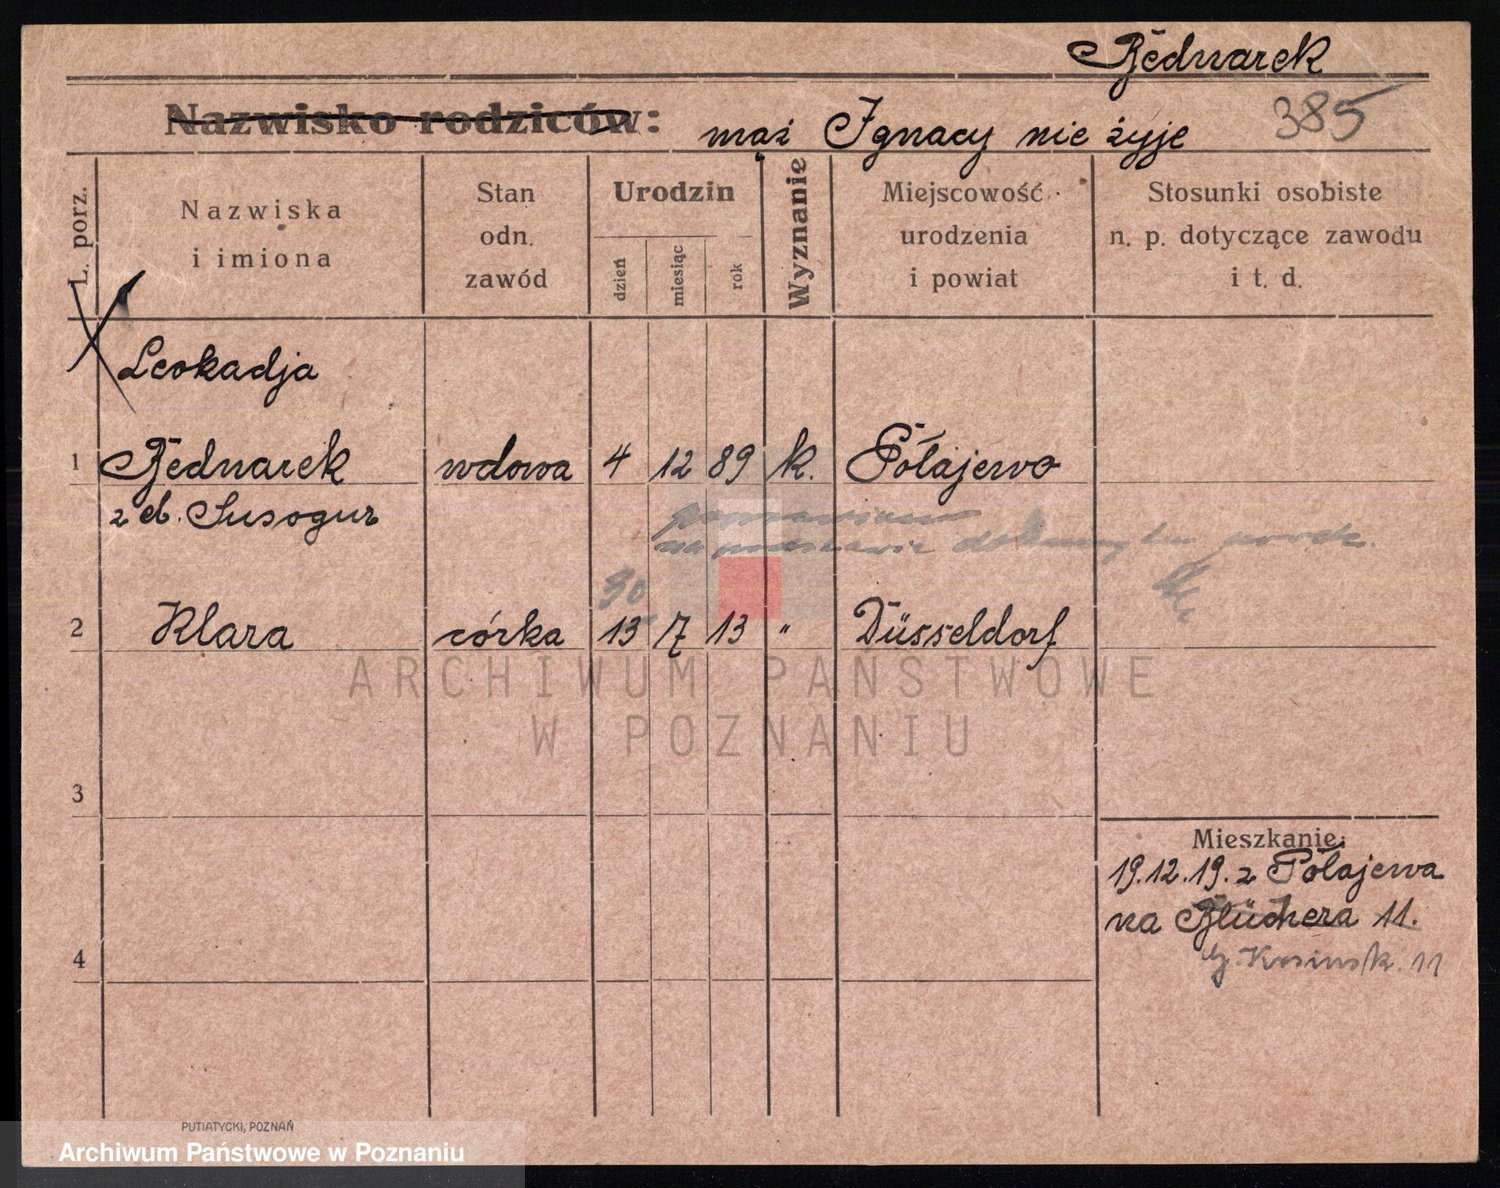 Bednarek
Nazwisko rodziców: mąż Ignacy nie żyje 385
L. porz.
Nazwiska
i imiona
Stan
odn.
zawód
Urodzin
dzień
miesiąc
rok
Wyznanie
Miejscowość
urodzenia
i powiat
Stosunki osobiste
n. p. dotyczące zawodu
i t. d.
Leokadja
1 Bednarek wdowa 4 12 89 k. Połajewo
z d. Susogur
poprawiono
na podstawie dokumentu
30
2 Klara córka 13 7 13 " Düsseldorf
ARCHIWUM PAŃSTWOWE
W POZNANIU
3
Mieszkanie:
19.12.19. z Połajewa
na Blüchera 11.
4
11
PUTIATYCKI, POZNAŃ
Archiwum Państwowe w Poznaniu